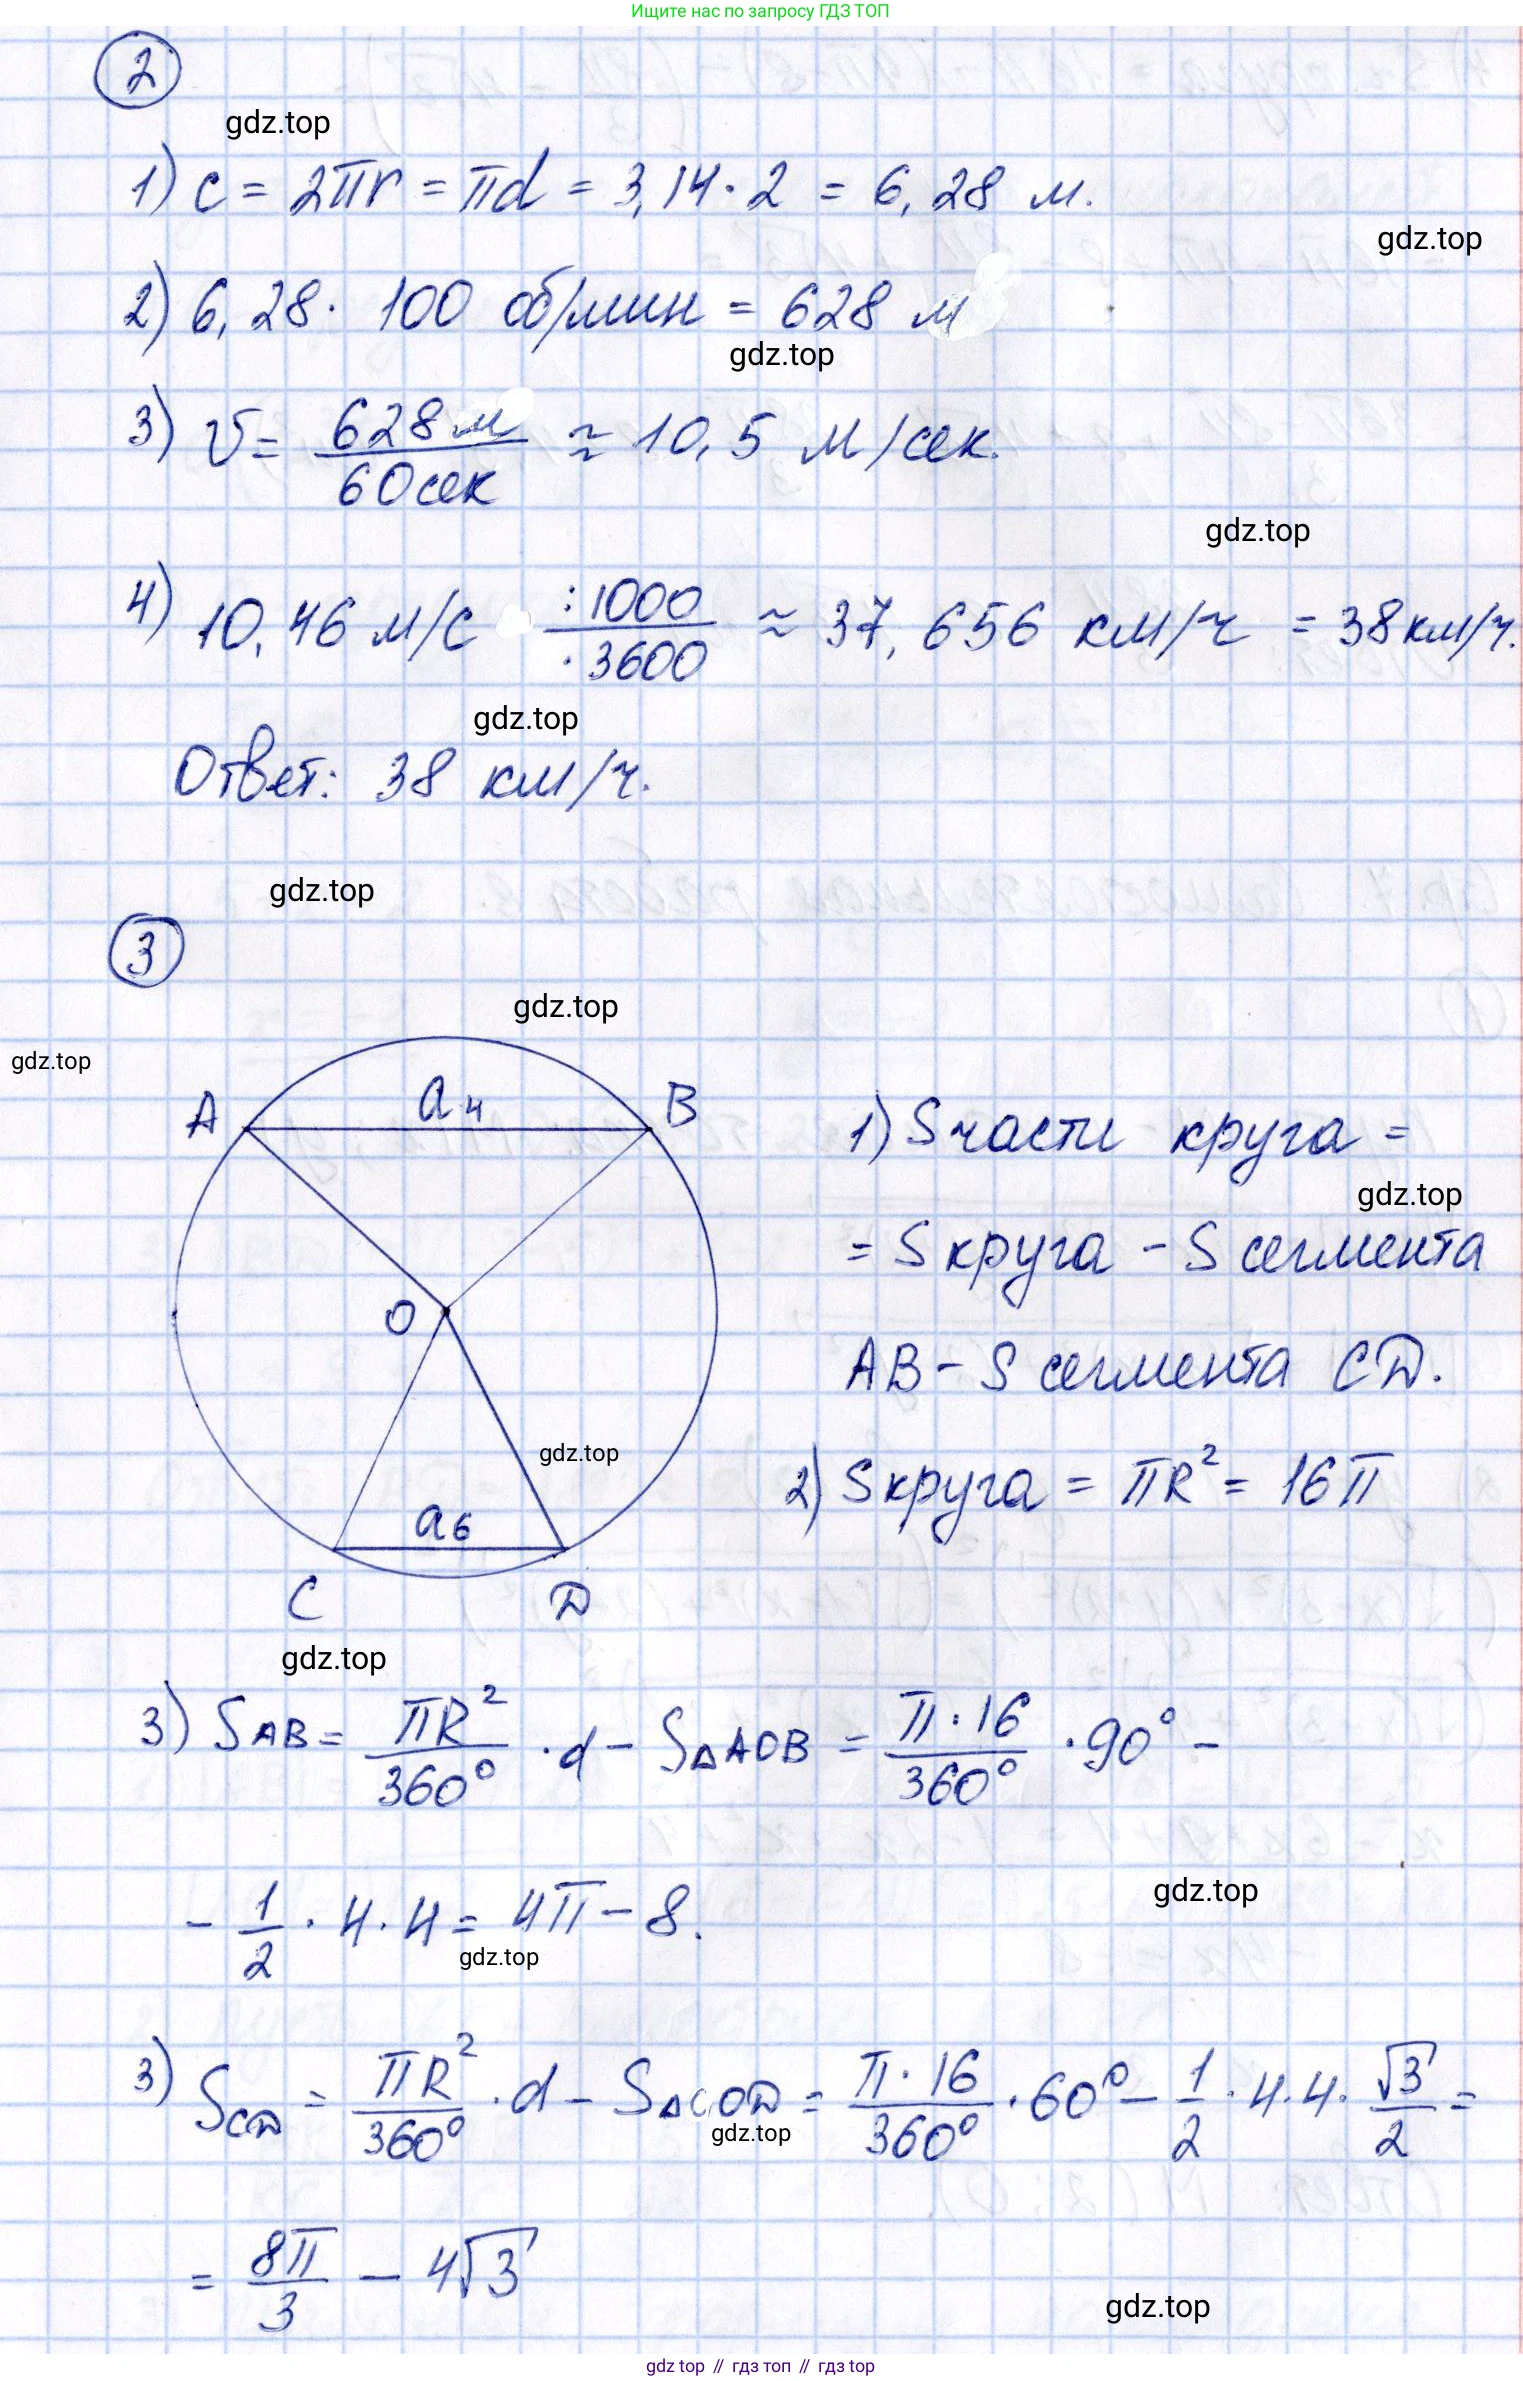 Ищите нас по запросу ГДЗ ТОП
2
gdz.top
1) c = 2πr = πd = 3,14 · 2 = 6,28 м.
gdz.top
2) 6,28 · 100 об/мин = 628 м
gdz.top
3) v = 628 м / 60 сек ≈ 10,5 м/сек.
gdz.top
4) 10,46 м/с :1000 / ·3600 ≈ 37,656 км/ч = 38 км/ч.
gdz.top
Ответ: 38 км/ч.
gdz.top
3
gdz.top
gdz.top
A a₄ B
O
a₆
C D
gdz.top
1) S части круга =
gdz.top
= S круга - S сегмента
AB - S сегмента CD.
2) S круга = πR² = 16π
gdz.top
3) S AB = πR²/360° · α - S△AOB = π·16/360° · 90° -
gdz.top
- 1/2 · 4 · 4 = 4π - 8.
gdz.top
3) S CD = πR²/360° · α - S△COD = π·16/360° · 60° - 1/2 · 4 · 4 · √3/2 =
gdz.top
= 8π/3 - 4√3
gdz.top
gdz top // гдз топ // гдз top